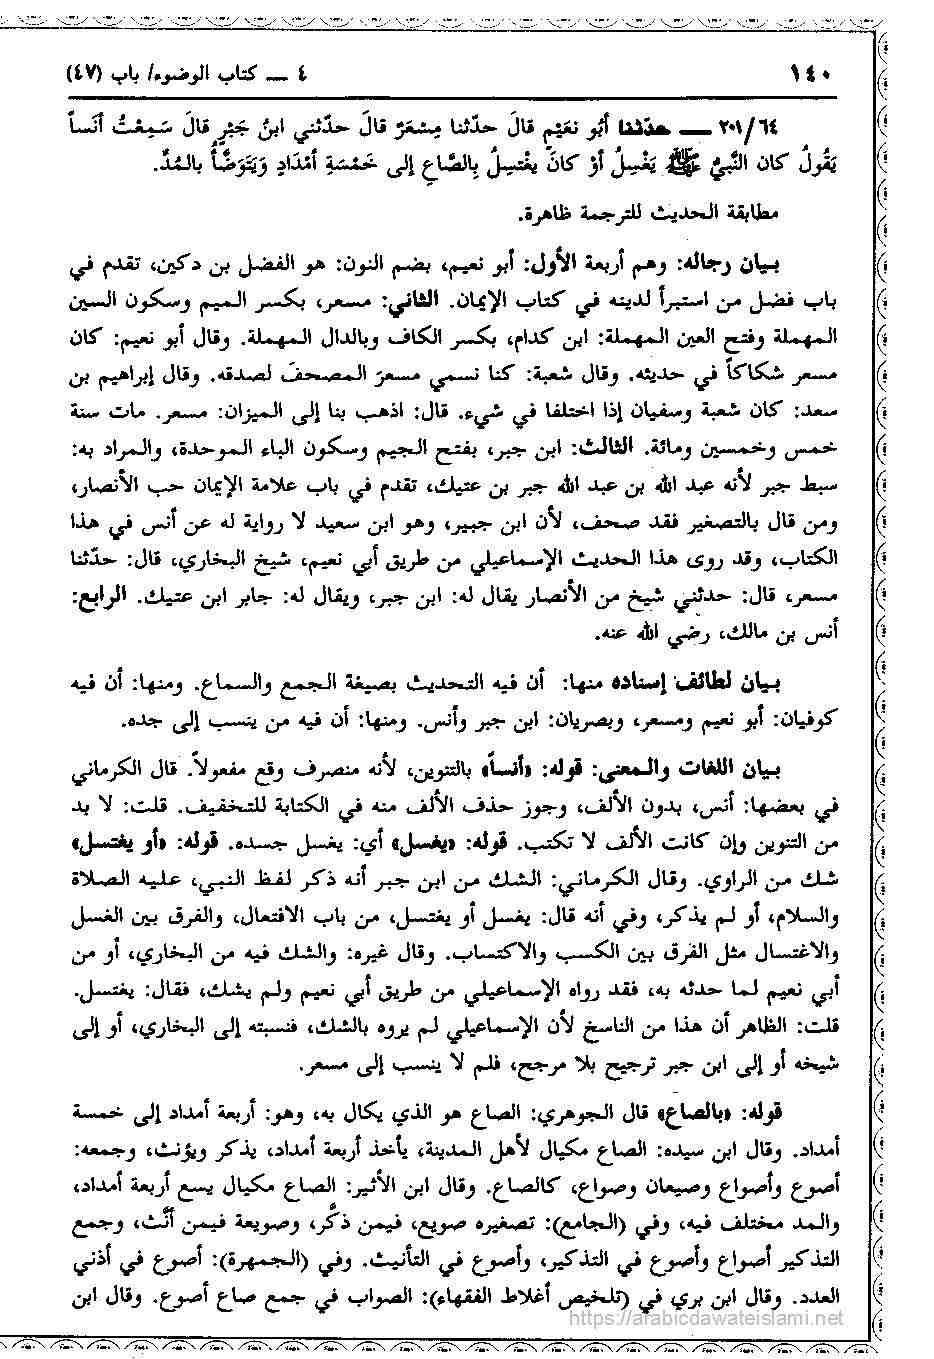 ١٤٠
٤ ـــ كتاب الوضوء/ باب (٤٧)
٢٠١/٦٤ ـــ حدّثنا أبُو نعَيْمٍ قالَ حدّثنا مِسْعَرٌ قالَ حدّثني ابنُ جَبْرٍ قالَ سَمِعْتُ أنَساً
يَقُولُ كان النَّبيُّ ﷺ يَغْسِلُ أوْ كانَ يغْتسِلُ بِالصَّاعِ إلى خَمْسَةِ أمْدَادٍ وَيَتَوَضَّأُ بالمُدِّ.
مطابقة الحديث للترجمة ظاهرة.
بيان رجاله: وهم أربعة الأول: أبو نعيم، بضم النون: هو الفضل بن دكين، تقدم في
باب فضل من استبرأ لدينه في كتاب الإيمان. الثاني: مسعر، بكسر الميم وسكون السين
المهملة وفتح العين المهملة: ابن كدام، بكسر الكاف وبالدال المهملة. وقال أبو نعيم: كان
مسعر شكاكاً في حديثه. وقال شعبة: كنا نسمي مسعرَ المصحفَ لصدقه. وقال إبراهيم بن
سعد: كان شعبة وسفيان إذا اختلفا في شيء. قال: اذهب بنا إلى الميزان: مسعر. مات سنة
خمس وخمسين ومائة. الثالث: ابن جبر، بفتح الجيم وسكون الباء الموحدة، والمراد به:
سبط جبر لأنه عبد الله بن عبد الله جبر بن عتيك، تقدم في باب علامة الإيمان حب الأنصار،
ومن قال بالتصغير فقد صحف، لأن ابن جبير، وهو ابن سعيد لا رواية له عن أنس في هذا
الكتاب، وقد روى هذا الحديث الإسماعيلي من طريق أبي نعيم، شيخ البخاري، قال: حدّثنا
مسعر، قال: حدثني شيخ من الأنصار يقال له: ابن جبر، ويقال له: جابر ابن عتيك. الرابع:
أنس بن مالك، رضي الله عنه.
بيان لطائف إسناده منها: أن فيه التحديث بصيغة الجمع والسماع. ومنها: أن فيه
كوفيان: أبو نعيم ومسعر، وبصريان: ابن جبر وأنس. ومنها: أن فيه من ينسب إلى جده.
بيان اللغات والمعنى: قوله: «أنساً» بالتنوين، لأنه منصرف وقع مفعولاً. قال الكرماني
في بعضها: أنس، بدون الألف، وجوز حذف الألف منه في الكتابة للتخفيف. قلت: لا بد
من التنوين وإن كانت الألف لا تكتب. قوله: «يغسل» أي: يغسل جسده. قوله: «أو يغتسل»
شك من الراوي. وقال الكرماني: الشك من ابن جبر أنه ذكر لفظ النبي، عليه الصلاة
والسلام، أو لم يذكر، وفي أنه قال: يغسل أو يغتسل، من باب الافتعال، والفرق بين الغسل
والاغتسال مثل الفرق بين الكسب والاكتساب. وقال غيره: والشك فيه من البخاري، أو من
أبي نعيم لما حدثه به، فقد رواه الإسماعيلي من طريق أبي نعيم ولم يشك، فقال: يغتسل.
قلت: الظاهر أن هذا من الناسخ لأن الإسماعيلي لم يروه بالشك، فنسبته إلى البخاري، أو إلى
شيخه أو إلى ابن جبر ترجيح بلا مرجح، فلم لا ينسب إلى مسعر.
قوله: «بالصاع» قال الجوهري: الصاع هو الذي يكال به، وهو: أربعة أمداد إلى خمسة
أمداد. وقال ابن سيده: الصاع مكيال لأهل المدينة، يأخذ أربعة أمداد، يذكر ويؤنث، وجمعه:
أصوع وأصواع وصيعان وصواع، كالصاع. وقال ابن الأثير: الصاع مكيال يسع أربعة أمداد،
والمد مختلف فيه، وفي (الجامع): تصغيره صويع، فيمن ذكَّر، وصويعة فيمن أنَّث، وجمع
التذكير أصواع وأصوع في التذكير، وأصوع في التأنيث. وفي (الجمهرة): أصوع في أذني
العدد. وقال ابن بري في (تلخيص أغلاط الفقهاء): الصواب في جمع صاع أصوع. وقال ابن
https://arabicdawateislami.net